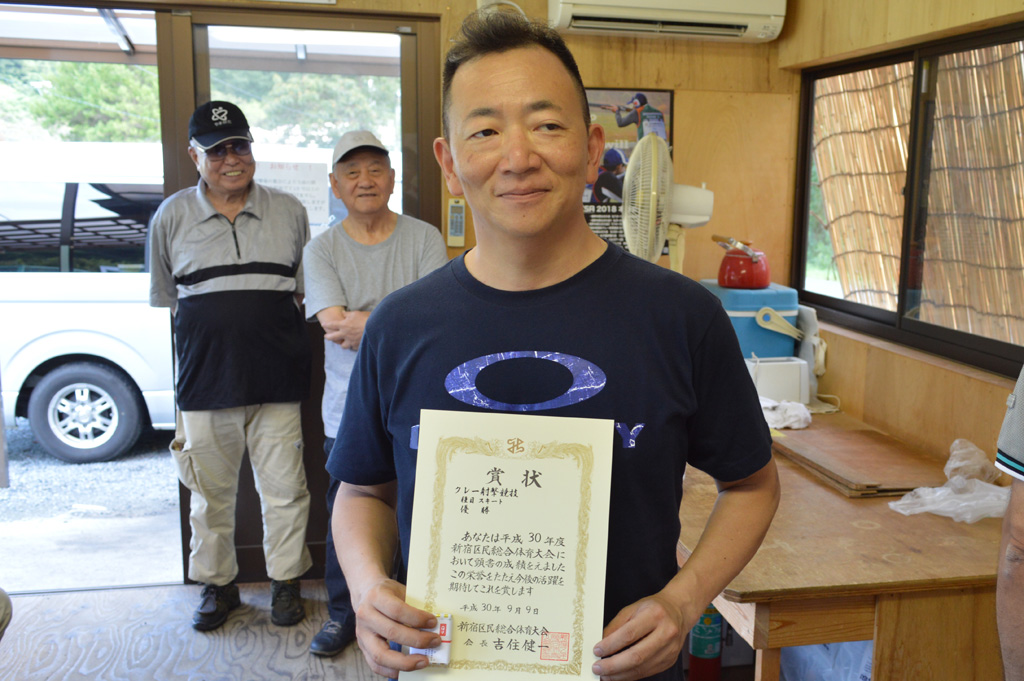 賞状
クレー射撃競技
種目 スキート
優勝
あなたは平成30年度
新宿区民総合体育大会に
おいて頭書の成績をえました
この栄誉をたたえ今後の活躍を
期待してこれを賞します
平成30年9月9日
新宿区民総合体育大会
会長 吉住健一